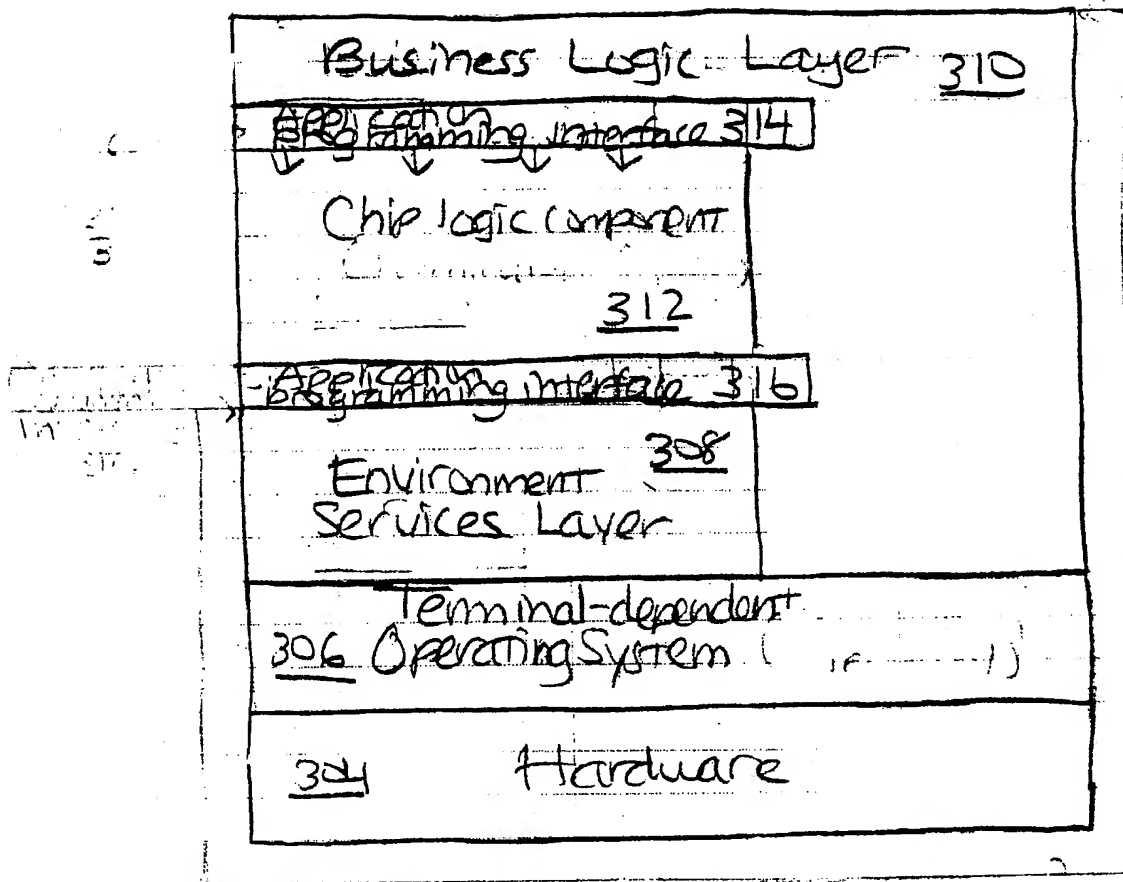 Business Logic Layer 310
Application
Programming interface 314
Chip logic component
312
Application
programming interface 316
308
Environment
Services Layer
Terminal-dependent
306 Operating System (
304 Hardware